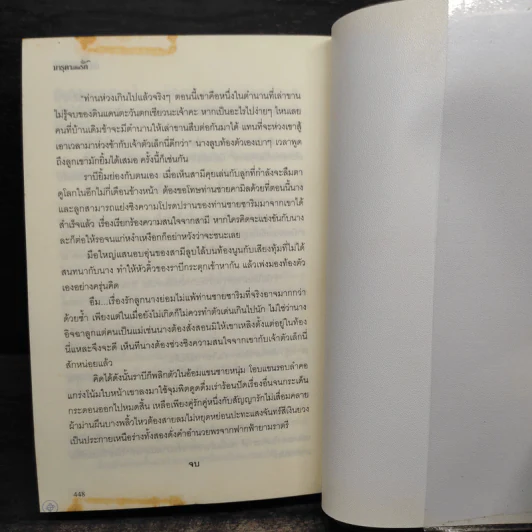 "ท่านห่วงเกินไปแล้วจริงๆ ตอนนี้เขาคือหนึ่งในตำนานที่เล่าขาน
ไม่รู้จบของดินแดนตะวันตกเชียวนะเจ้าคะ หากเป็นอะไรไปง่ายๆ ไหนเลย
คนที่บ้านเดิมข้าจะมีตำนานให้เล่าขานสืบต่อกันมาได้ แทนที่จะห่วงเขาสู้
เอาเวลามาห่วงข้ากับเจ้าตัวเล็กนี่ดีกว่า" นางลูบท้องตัวเองเบาๆ เวลาพูด
ถึงลูกเขามักยิ้มได้เสมอ ครั้งนี้ก็เช่นกัน
ราบียิ้มย่องกับตนเอง เมื่อเห็นสามีคุยเล่นกับลูกที่กำลังจะลืมตา
ดูโลกในอีกไม่กี่เดือนข้างหน้า ต้องขอโทษท่านชายคามิลด้วยที่ตอนนี้นาง
และลูกสามารถแย่งชิงความโปรดปรานของท่านชายชาริมมาจากเขาได้
สำเร็จแล้ว เรื่องเรียกร้องความสนใจจากสามี หากใครคิดจะแข่งขันกับนาง
ละก็ต่อให้รอจนแก่หง่าเหงือกก็อย่าหวังว่าจะชนะเลย
มือใหญ่แสนอบอุ่นของสามีลูบไล้บนท้องนูนกับเสียงทุ้มที่ไม่ได้
สนทนากับนาง ทำให้หัวคิ้วของราบีกระตุกเข้าหากัน แล้วเพ่งมองท้องตัว
เองอย่างครุ่นคิด
อืม...เรื่องรักลูกนางย่อมไม่แพ้ท่านชายชาริมที่จริงอาจมากกว่า
ด้วยซ้ำ เพียงแต่ในเมื่อยังไม่เกิดก็ไม่ควรทำตัวเด่นเกินไปนัก ไม่ใช่ว่านาง
อิจฉาลูกแต่คนเป็นแม่เช่นนางต้องสั่งสอนมิให้เขาเหลิงตั้งแต่อยู่ในท้อง
นี่แหละจึงจะดี เห็นทีนางต้องช่วงชิงความสนใจจากเขากับเจ้าตัวเล็กนี่
สักหน่อยแล้ว
คิดได้ดังนั้นราบีก็พลิกตัวในอ้อมแขนชายหนุ่ม โอบแขนรอบลำคอ
แกร่งโน้มใบหน้าเขาลงมาใช้จุมพิตดูดดื่มเร่าร้อนปัดเรื่องอื่นจนกระเด็น
กระดอนออกไปหมดสิ้น เหลือเพียงคู่รักคู่หนึ่งกับสัญญารักไม่เสื่อมคลาย
ผ้าม่านผืนบางพลิ้วไหวต้องสายลมไม่หยุดหย่อนปะทะแสงจันทร์สีเงินยวง
เป็นประกายเหนือร่างทั้งสองดั่งคำอำนวยพรจากฟากฟ้ายามราตรี
จบ
448